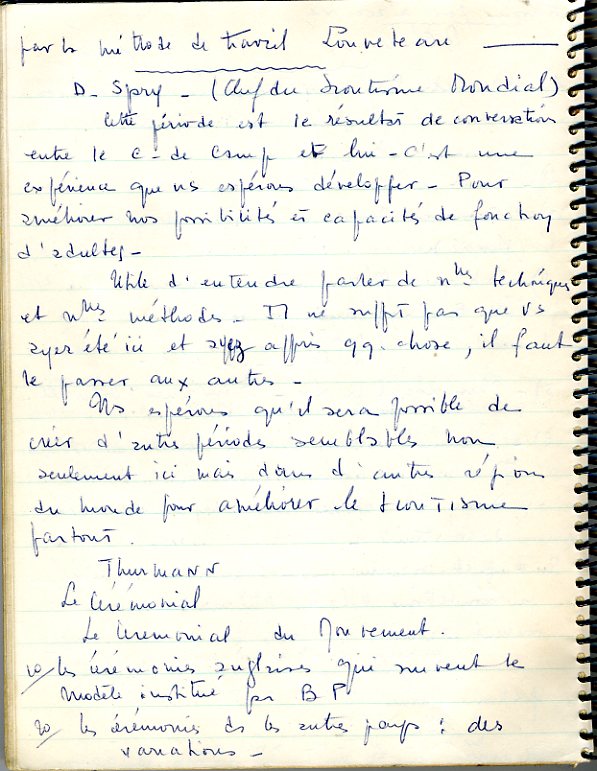 par la méthode de travail Louveteau
D. Spry - (Chef du Scoutisme Mondial)
Cette période est le résultat de conversation
entre le C. de Camp et lui - C'est une
expérience que ns espérons développer - Pour
améliorer nos possibilités et capacités de fonction
d'adultes -
Utile d'entendre parler de nlles techniques
et nlles méthodes - Il ne suffit pas que vs
ayez été ici et ayez appris qq. chose, il faut
le passer aux autres -
Ns espérons qu'il sera possible de
créer d'autres périodes semblables non
seulement ici mais dans d'autres régions
du monde pour améliorer le scoutisme
partout.
Thurmann
Le Cérémonial
Le Ceremonial du Mouvement.
1o/ les cérémonies anglaises qui suivent le
modèle institué par B P
2o/ les cérémonies ds les autres pays : des
variations -